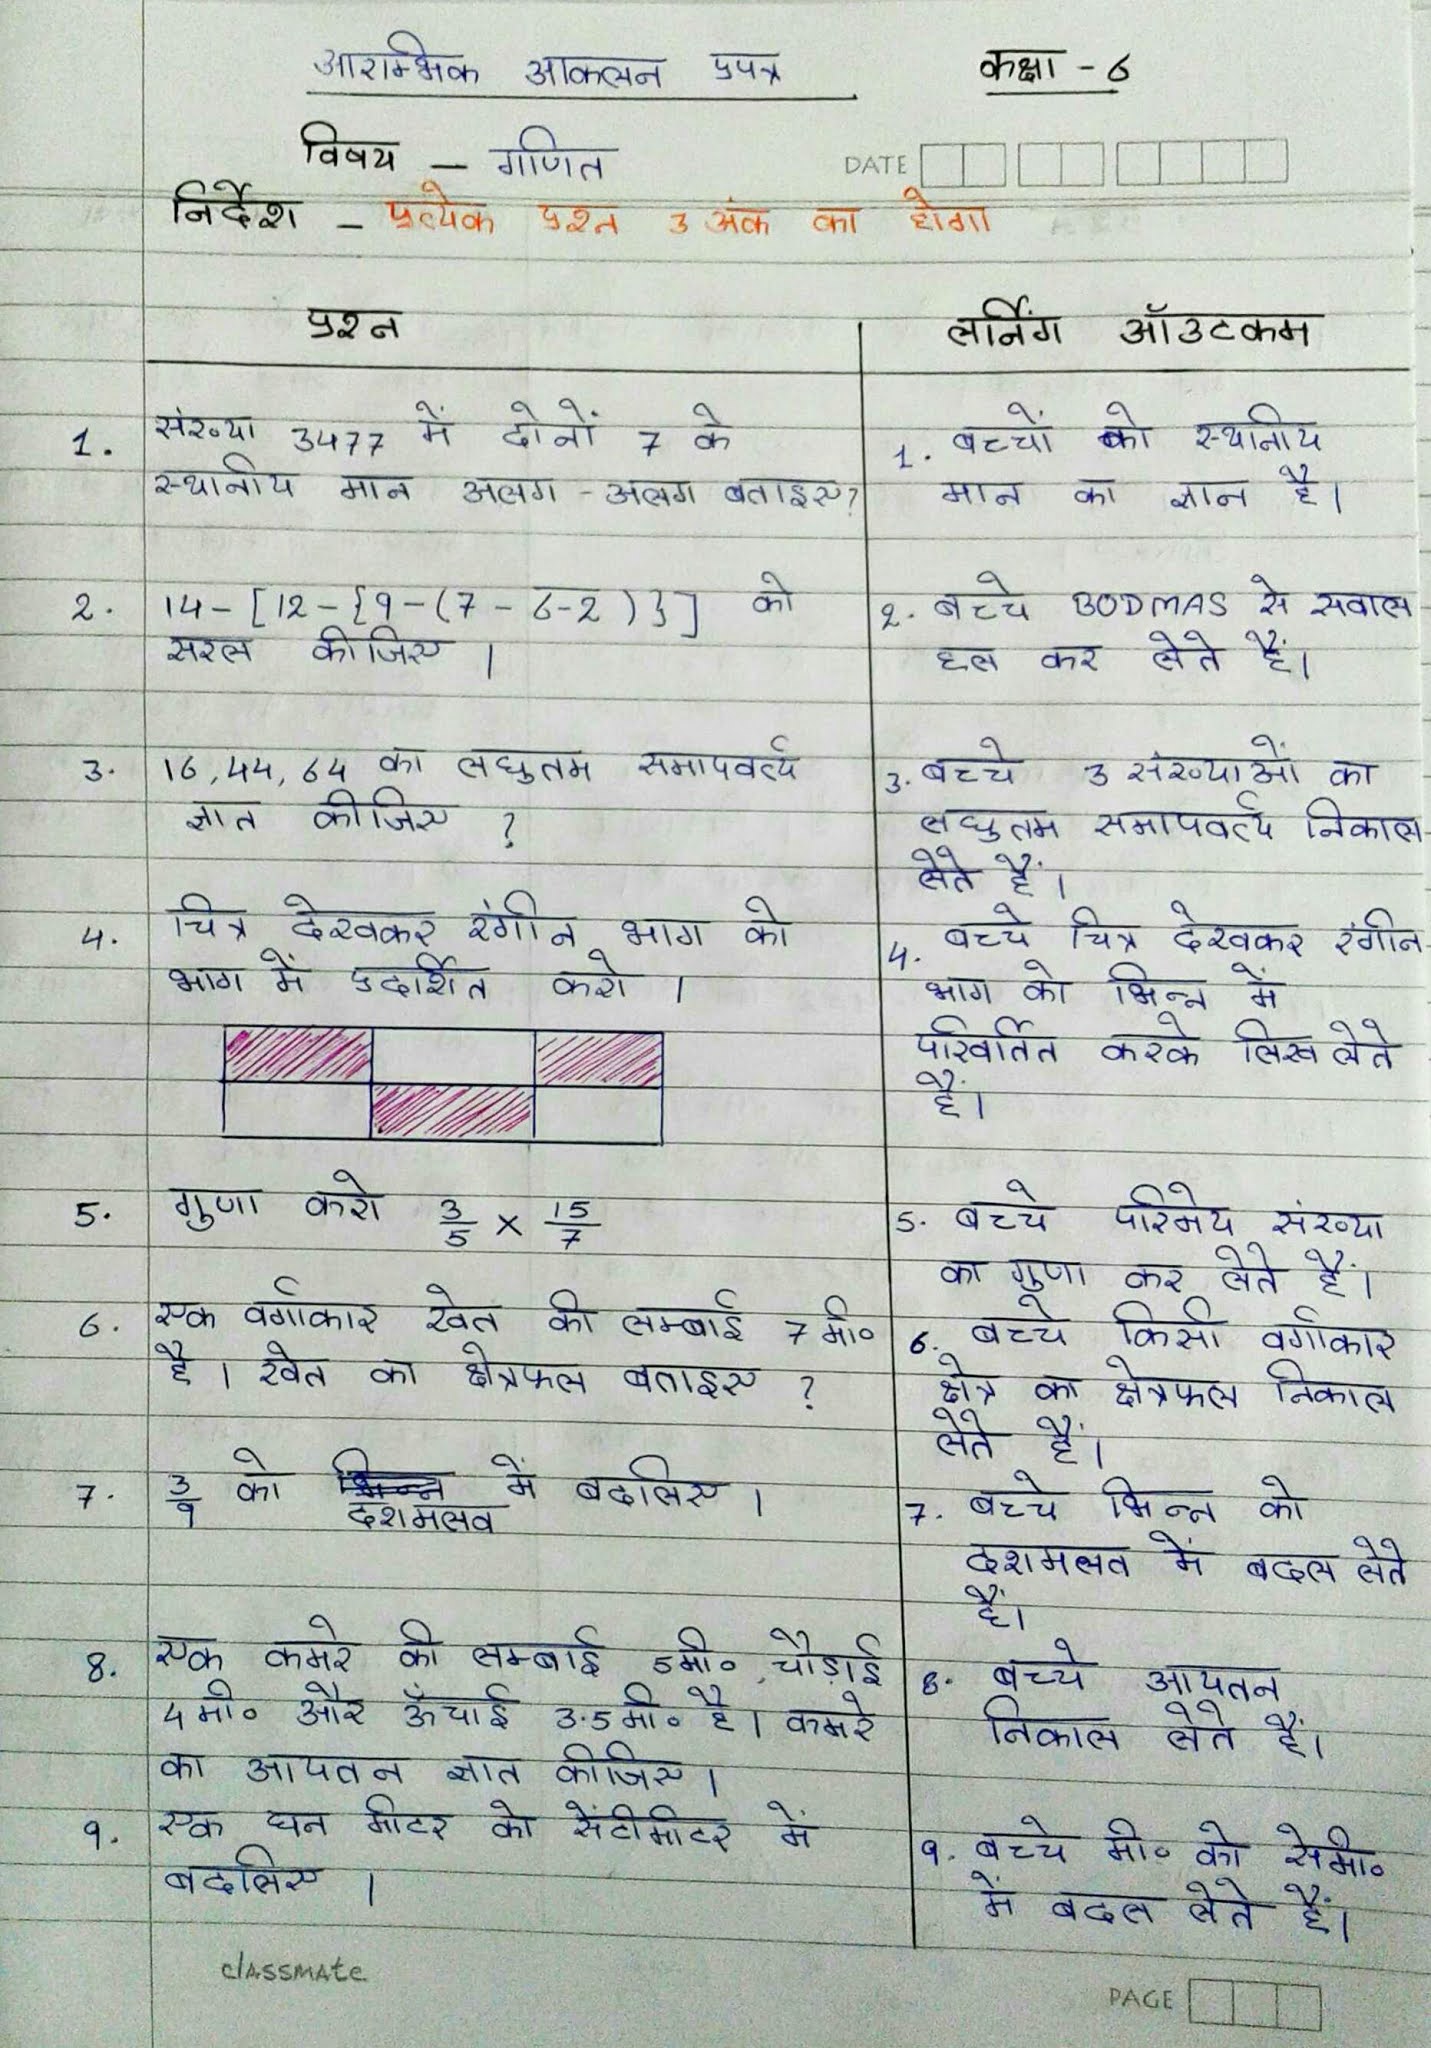 आरम्भिक आकलन प्रपत्र कक्षा - 6
विषय - गणित
DATE
निर्देश - प्रत्येक प्रश्न 3 अंक का होगा
प्रश्न
लर्निंग ऑउटकम
1. संख्या 3477 में दोनों 7 के
स्थानीय मान अलग - अलग बताइए?
1. बच्चों को स्थानीय
मान का ज्ञान है।
2. 14-[12-{9-(7-6-2)}] को
सरल कीजिए।
2. बच्चे BODMAS से सवाल
हल कर लेते हैं।
3. 16,44,64 का लघुतम समापवर्त्य
ज्ञात कीजिए ?
3. बच्चे 3 संख्याओं का
लघुतम समापवर्त्य निकाल
लेते हैं।
4. चित्र देखकर रंगीन भाग को
भाग में प्रदर्शित करो ।
4. बच्चे चित्र देखकर रंगीन
भाग को भिन्न में
परिवर्तित करके लिख लेते
हैं।
5. गुणा करो 3/5 × 15/7
5. बच्चे परिमेय संख्या
का गुणा कर लेते हैं।
6. एक वर्गाकार खेत की लम्बाई 7 मी०
है । खेत का क्षेत्रफल बताइए ?
6. बच्चे किसी वर्गाकार
क्षेत्र का क्षेत्रफल निकाल
लेते हैं।
7. 3/9 को भिन्न में बदलिए ।
दशमलव
7. बच्चे भिन्न को
दशमलव में बदल लेते
हैं।
8. एक कमरे की लम्बाई 5मी० , चौड़ाई
4मी० और ऊँचाई 3.5मी० है। कमरे
का आयतन ज्ञात कीजिए।
8. बच्चे आयतन
निकाल लेते हैं।
9. एक घन मीटर को सेंटीमीटर में
बदलिए ।
9. बच्चे मी० को सेमी०
में बदल लेते हैं।
classmate
PAGE